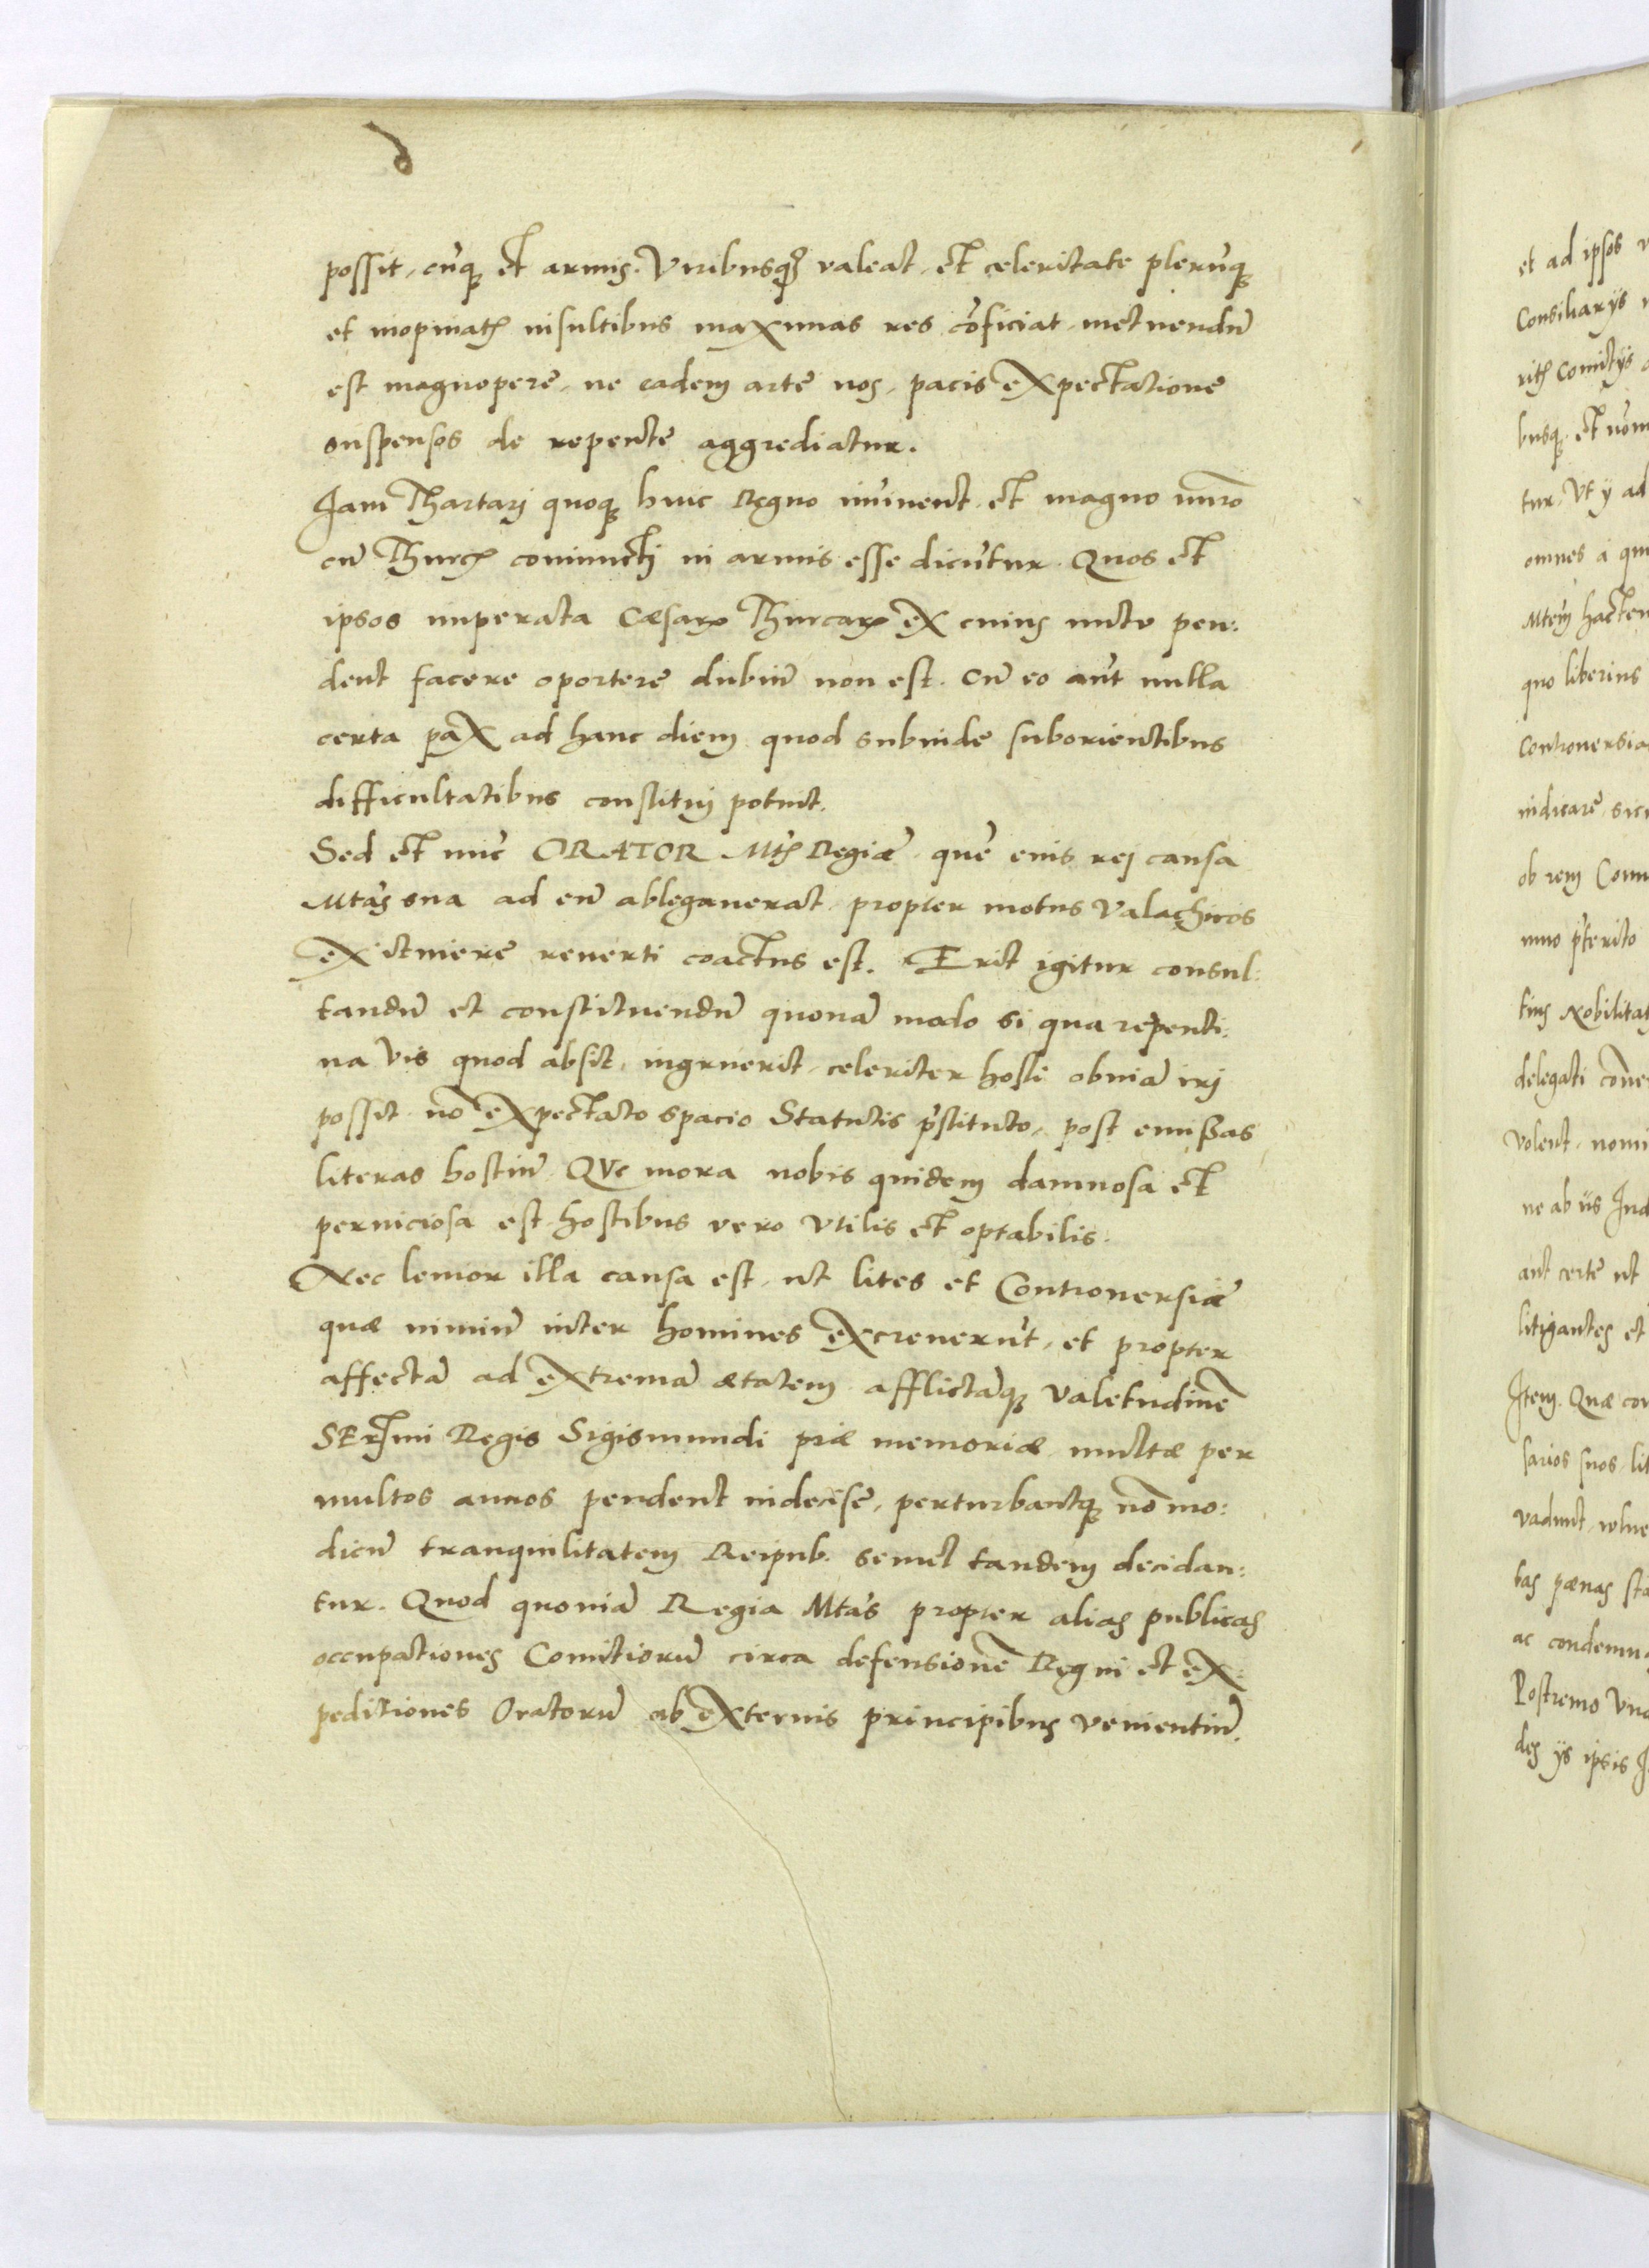 possit, cūq; et armis. Viribusq; valeat, et celeritate plerūq;
et inopinatꝭ insultibus maximas res cōficiat, metuendū
est magnopere, ne eadem arte nos, pacis expectatione
suspensos de repente aggrediatur.
Jam Thartarj quoq; huic Regno īminent, et magno nūro
cū Thurcꝭ coniunctj in armis esse dicūtur. Quos et
ipsos imperata Cæsarꝭ Thurcarꝝ ex cuius nutu pen:
dent facere oportere dubiū non est. Cū eo aūt nulla
certa pax ad hanc diem, quod subinde suborientibus
difficultatibus constitui potuit.
Sed et nūc ORATOR Mtꝭ Regiæ, quē eius rej causa
Mtās sua ad eū ablegauerat, propter motus Valachicos
ex itinere reuerti coactus est. Erit igitur consul:
tandū et constituendū quonā modo si qua repenti:
na vis quod absit, ingruerit, celeriter hosti obuiā irj
possit, nō expectato spacio Statutis p̄stituto, post emißas
literas hostiū. Quę mora nobis quidem damnosa et
perniciosa est, hostibus vero Vtilis et optabilis.
Nec leuior illa causa est, ut lites et Controuersiæ
quæ nimiū inter homines excreuerūt, et propter
affectā ad extremā ætatem, afflictāq; Valetudinē
SErꝭmi Regis Sigismundi piæ memoriæ multæ per
multos annos pendent indecisę, perturbantq; nō mo:
dicū tranquilitatem Reipub. semel tandem decidan:
tur. Quod quoniā Regia Mtās propter alias publicas
occupationes Comitiorū circa defensionē Regni et ex:
peditiones Oratorū ab externis principibus venientiū.
et ad ipsos
Consiliarijs
Comitijs
busq; et
tur, Vt ij ad
omnes à
Mtēm
quo liberius
indicare
ob rem
delegati
Volent,
ne ab iis
aut certe ut
litigantes et
Item. Quæ
sarios suos,
bas pænas
ac
Postremo
ijs ipsis